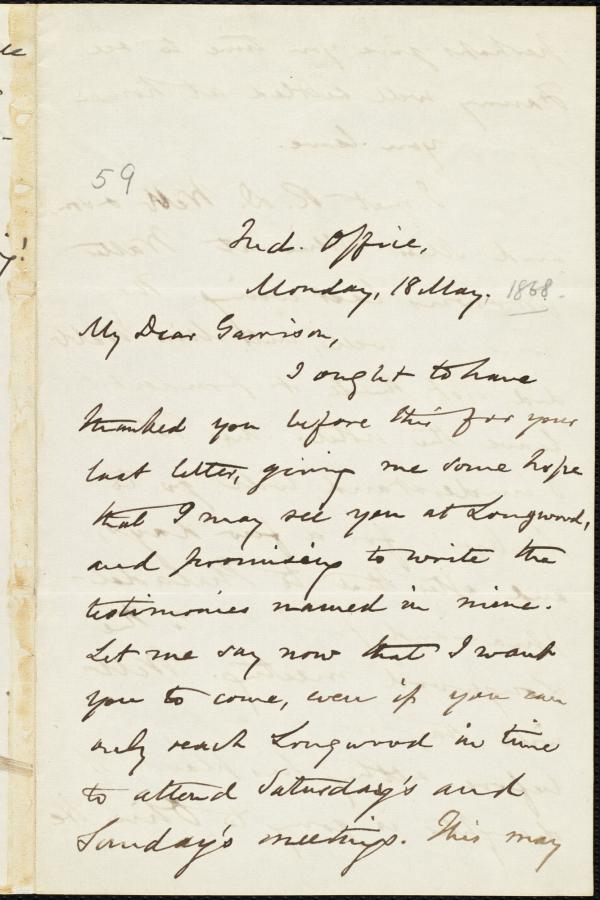 59
Ind. Office,
Monday, 18 May. 1868.
My Dear Garrison,
I ought to have
thanked you before this for your
last letter, giving me some hope
that I may see you at Longwood,
and promising to write the
testimonies named in mine.
Let me say now that I want
you to come, even if you can
only reach Longwood in time
to attend Saturday's and
Sunday's meetings. This may